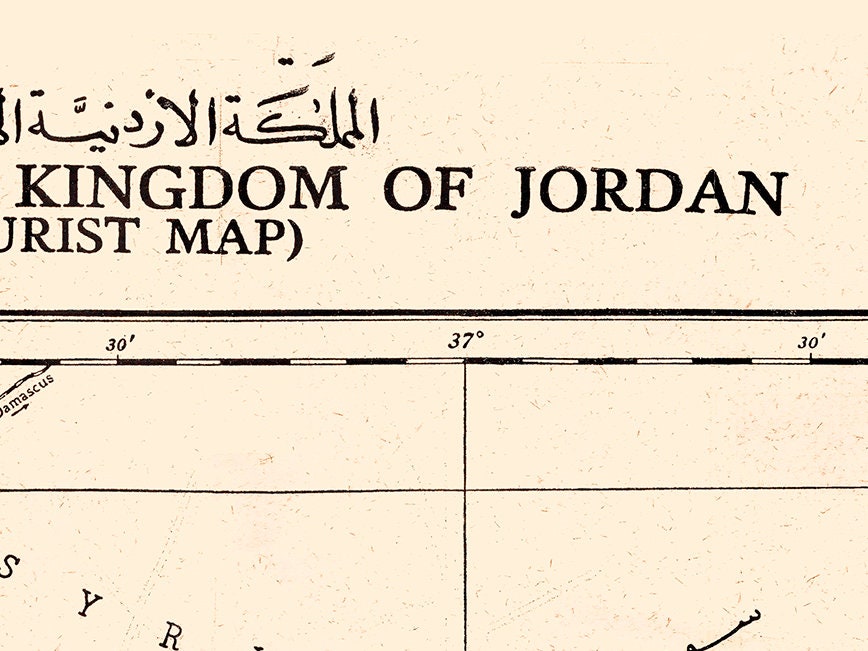 المملكة الاردنيّة
KINGDOM OF JORDAN
MAP)
30' 37° 30'
Damascus
S Y R